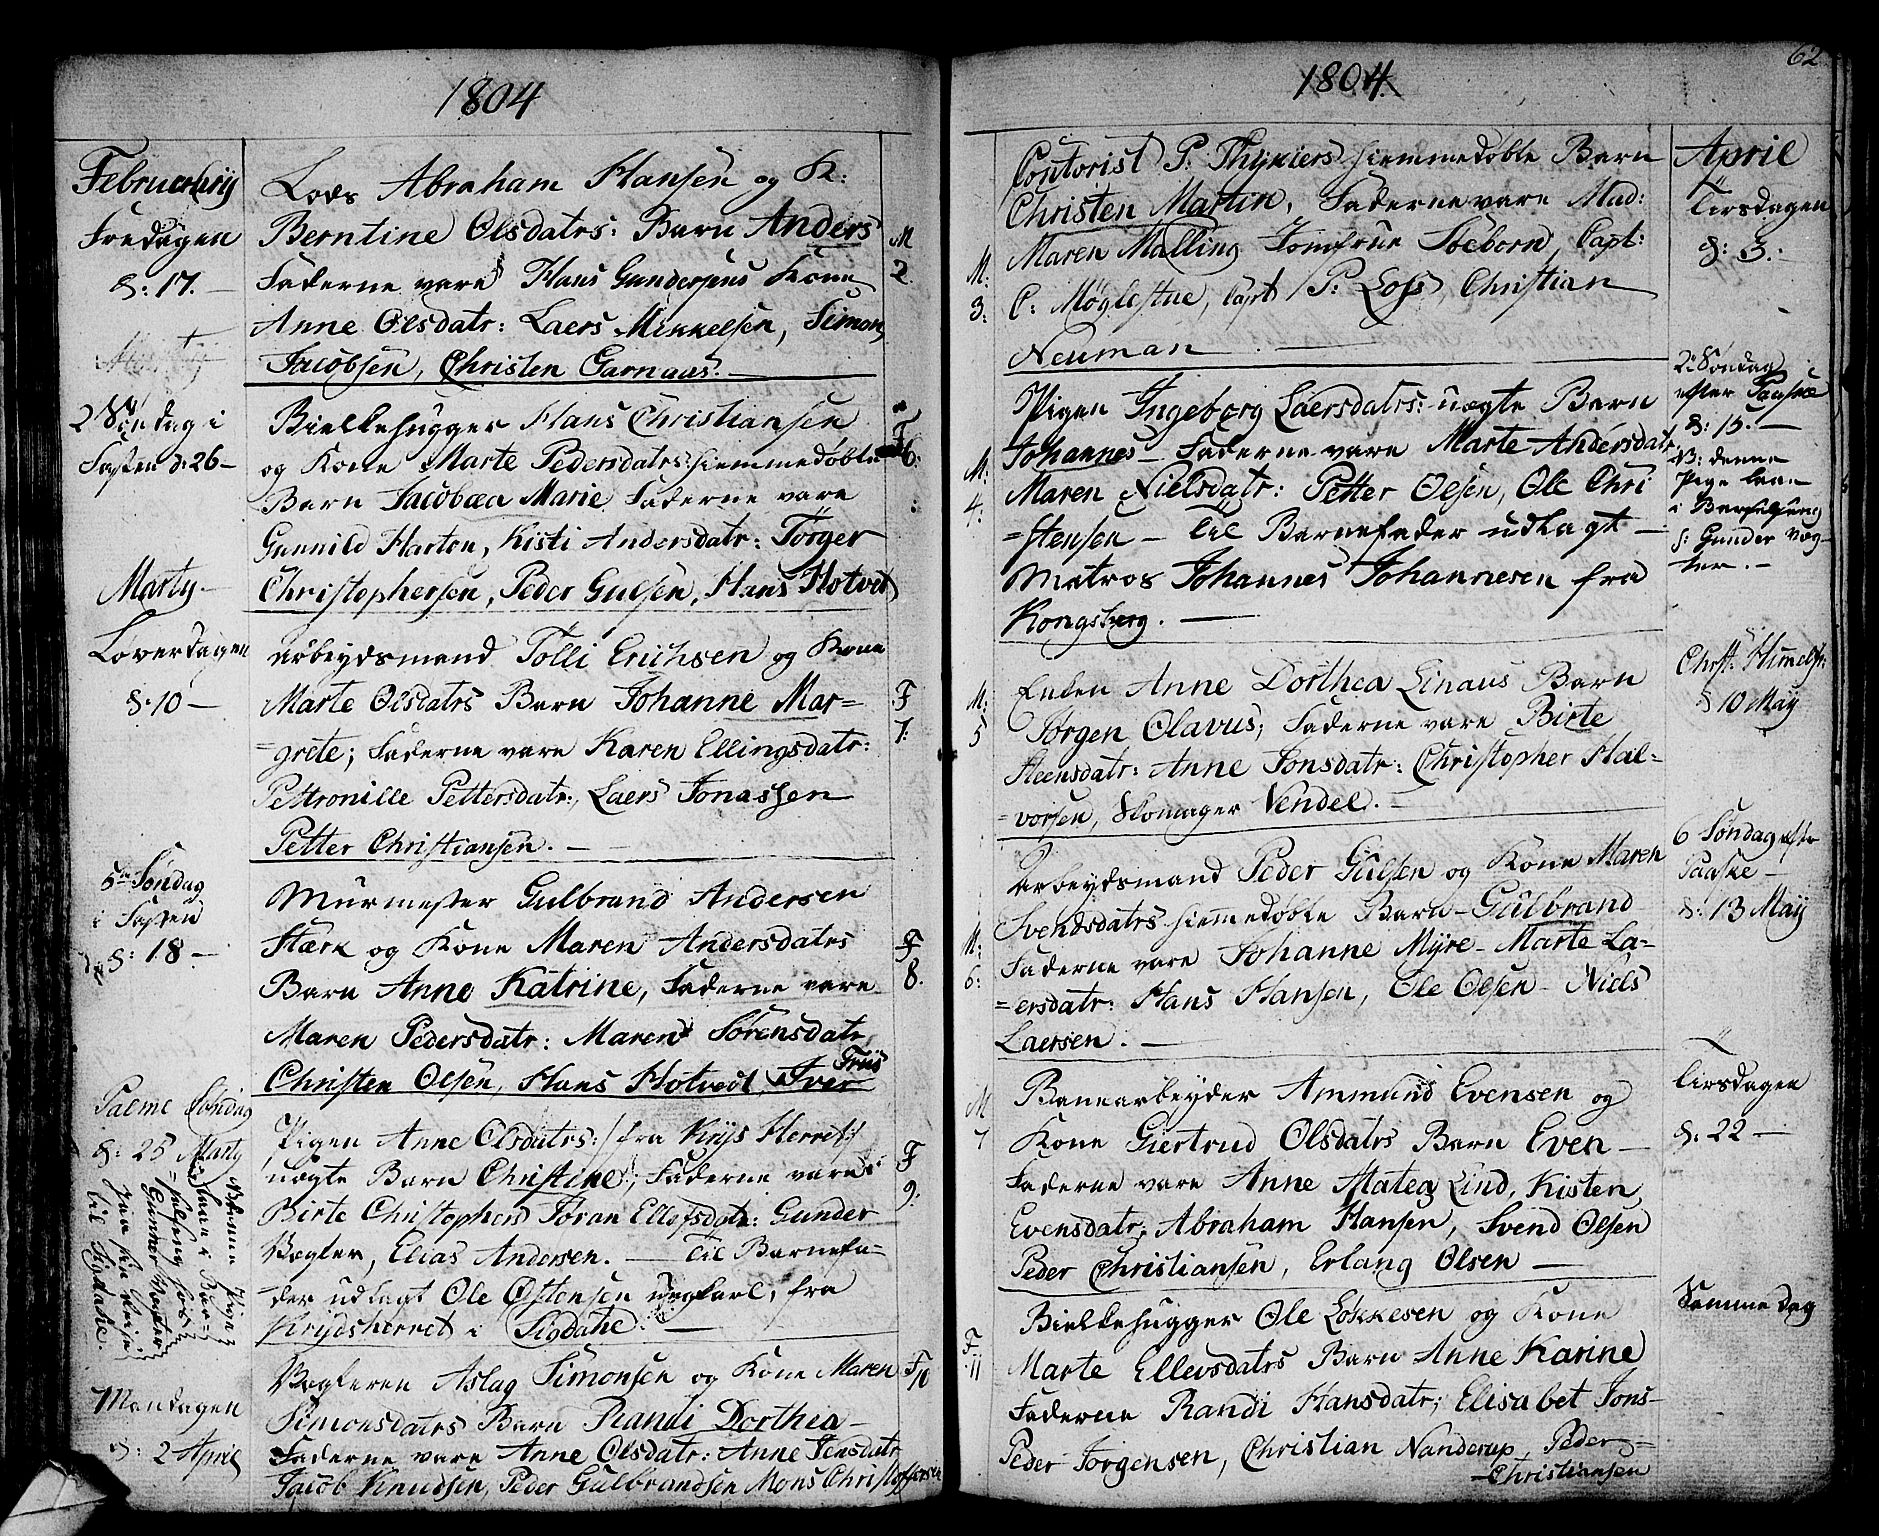 1804
Februarij
Fredagen
d: 17. —
Lods Abraham Hansen og K:
Berntine Olsdatrs: Barn Anders
Fadderne vare Hans Gundersens Kone
Anne Olsdatr: Laers Mikkelsen, Simon
Jacobsen, Christen Garnaas. —
M
2.
2 Søndag i
Fasten d: 26 —
Bielkehugger Hans Christiansen
og Kone Marte Pedersdatrs hiemmedøbte
Barn Jacobæa Marie Fadderne vare
Gunnild Harton, Kisti Andersdatr: Törger
Christophersen, Peder Gulsen, Hans Hotvet
F
6:
Marty —
Løverdagen
d: 10 —
Arbeydsmand Tolli Erichsen og Kone
Marte Olsdatrs Barn Johanne Mar=
=grete; Fadderne vare Karen Ellingsdatr:
Pettronille Pettersdatr:, Laers Jonassen
Petter Christiansen. —
F
7:
5te Søndag
i Fasten
d: 18 —
Murmester Gulbrand Andersen
Stærk og Kone Maren Andersdatrs
Barn Anne Katrine, Fadderne vare
Maren Pedersdatr: Maren Sørensdatr
Christen Olsen, Hans Hotvedt, Iver Friis
F
8.
Palme Søndag
d: 25 Marty
Pigen Anne Olsdatrs: fra Kryds Herret
uægte Barn Christine; Fadderne vare
Birte Christophers Jøran Ellefsdatr: Gunder
Vægter, Elias Andersen. — Til Barnefa=
der udlagt Ole Østensen ungkarl, fra
Krydsherret i Sigdahl. —
F
9:
NB: denne Pige
laae i Bar=
=selseng hos
Gunder Vægter
til Sigdahl.
Mandagen
d: 2 April
Vægteren Aslag Simonsen og Kone Maren
Simonsdatrs Barn Randi Dorthea —
Fadderne vare Anne Olsdatr: Anne Jensdatr
Jacob Knudsen, Peder Gulbrandsen Mons Christophersen
F
10
62
1804
April
Tirsdagen
d: 3. —
Contorist P: Thykiers hiemmedøbte Barn
Christen Martin, Fadderne vare Mad:
Maren Malling Jomfrue Søeborn, Capt:
C: Møglestue, Capt P: Loss, Christian
Neuman —
M:
3:
2: Søndag
efter Paaske
d: 15. —
NB: denne
Pige laae
i Barselseng
h: Gunder Væg=
ter. —
Pigen Ingeborg Laersdatrs: uægte Barn
Johannes — Fadderne vare Marte Andersdatr
Maren Nielsdatr: Petter Olsen, Ole Chri
=stensen — Til Barnefader udlagt —
Matros Johannes Johannesen fra
Kongsberg. —
M:
4:
Chrst: Himelf:
d 10 May
Enken Anne Dorthea Linaus Barn
Jørgen Olavus; Fadderne vare Birte
Steensdatr: Anne Jonsdatr: Christopher Hal=
=vorsen, Skomager Vendel. —
M:
5
6 Søndag efter
Paaske —
d: 13 May
Arbeydsmand Peder Gulsen og Kone Maren
Svendsdatrs hiemmedøbte Barn — Gulbrand
Fadderne vare Johanne Myre — Marte La=
=ersdatr: Hans Hansen, Ole Olsen — Niels
Laersen. —
M:
6:
Tirsdagen
d: 22 —
Baanearbeyder Ammund Evensen og
Kone Giertrud Olsdatrs Barn Even —
Fadderne vare Anne Matea Lind, Kisten
Evensdatr: Abraham Hansen, Svend Olsen
Peder Christiansen, Erlang Olsen —
M
7
Samme dag
Bielkehugger Ole Lokkesen og Kone
Marte Ellevsdatrs Barn Anne Karine
Fadderne Randi Hansdatr; Elisabet Jons=
Peder Jørgensen, Christian Nanderup, Peder
Christiansen
F
11